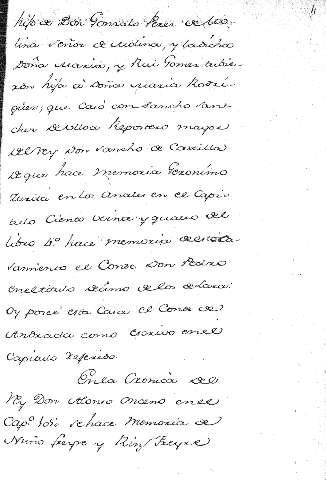 hijo de Don Gonzalo Perez de Mo-
lina Señor de Molina, y la dicha
Doña Maria, y Rui Gomez tubie-
ron hija á Doña Maria Rodri-
guez, que Casó con Sancho San-
chez de Ulloa Repostero mayor
del Rey Don Sancho de Castilla
de que hace memoria Geronimo
Zurita en los Anales en el Capi-
tulo Ciento veinte y quatro del
libro 4º hace memoria de este Ca-
samiento el Conde Don Pedro
en el titulo decimo de los de Lara:
Oy poseé esta Casa el Conde de
Andrada como escrivo en el
Capitulo referido.
En la Cronica del
Rey Don Alonso Onceno en el
Capº se hace Memoria de
Nuño freyre y Freyre